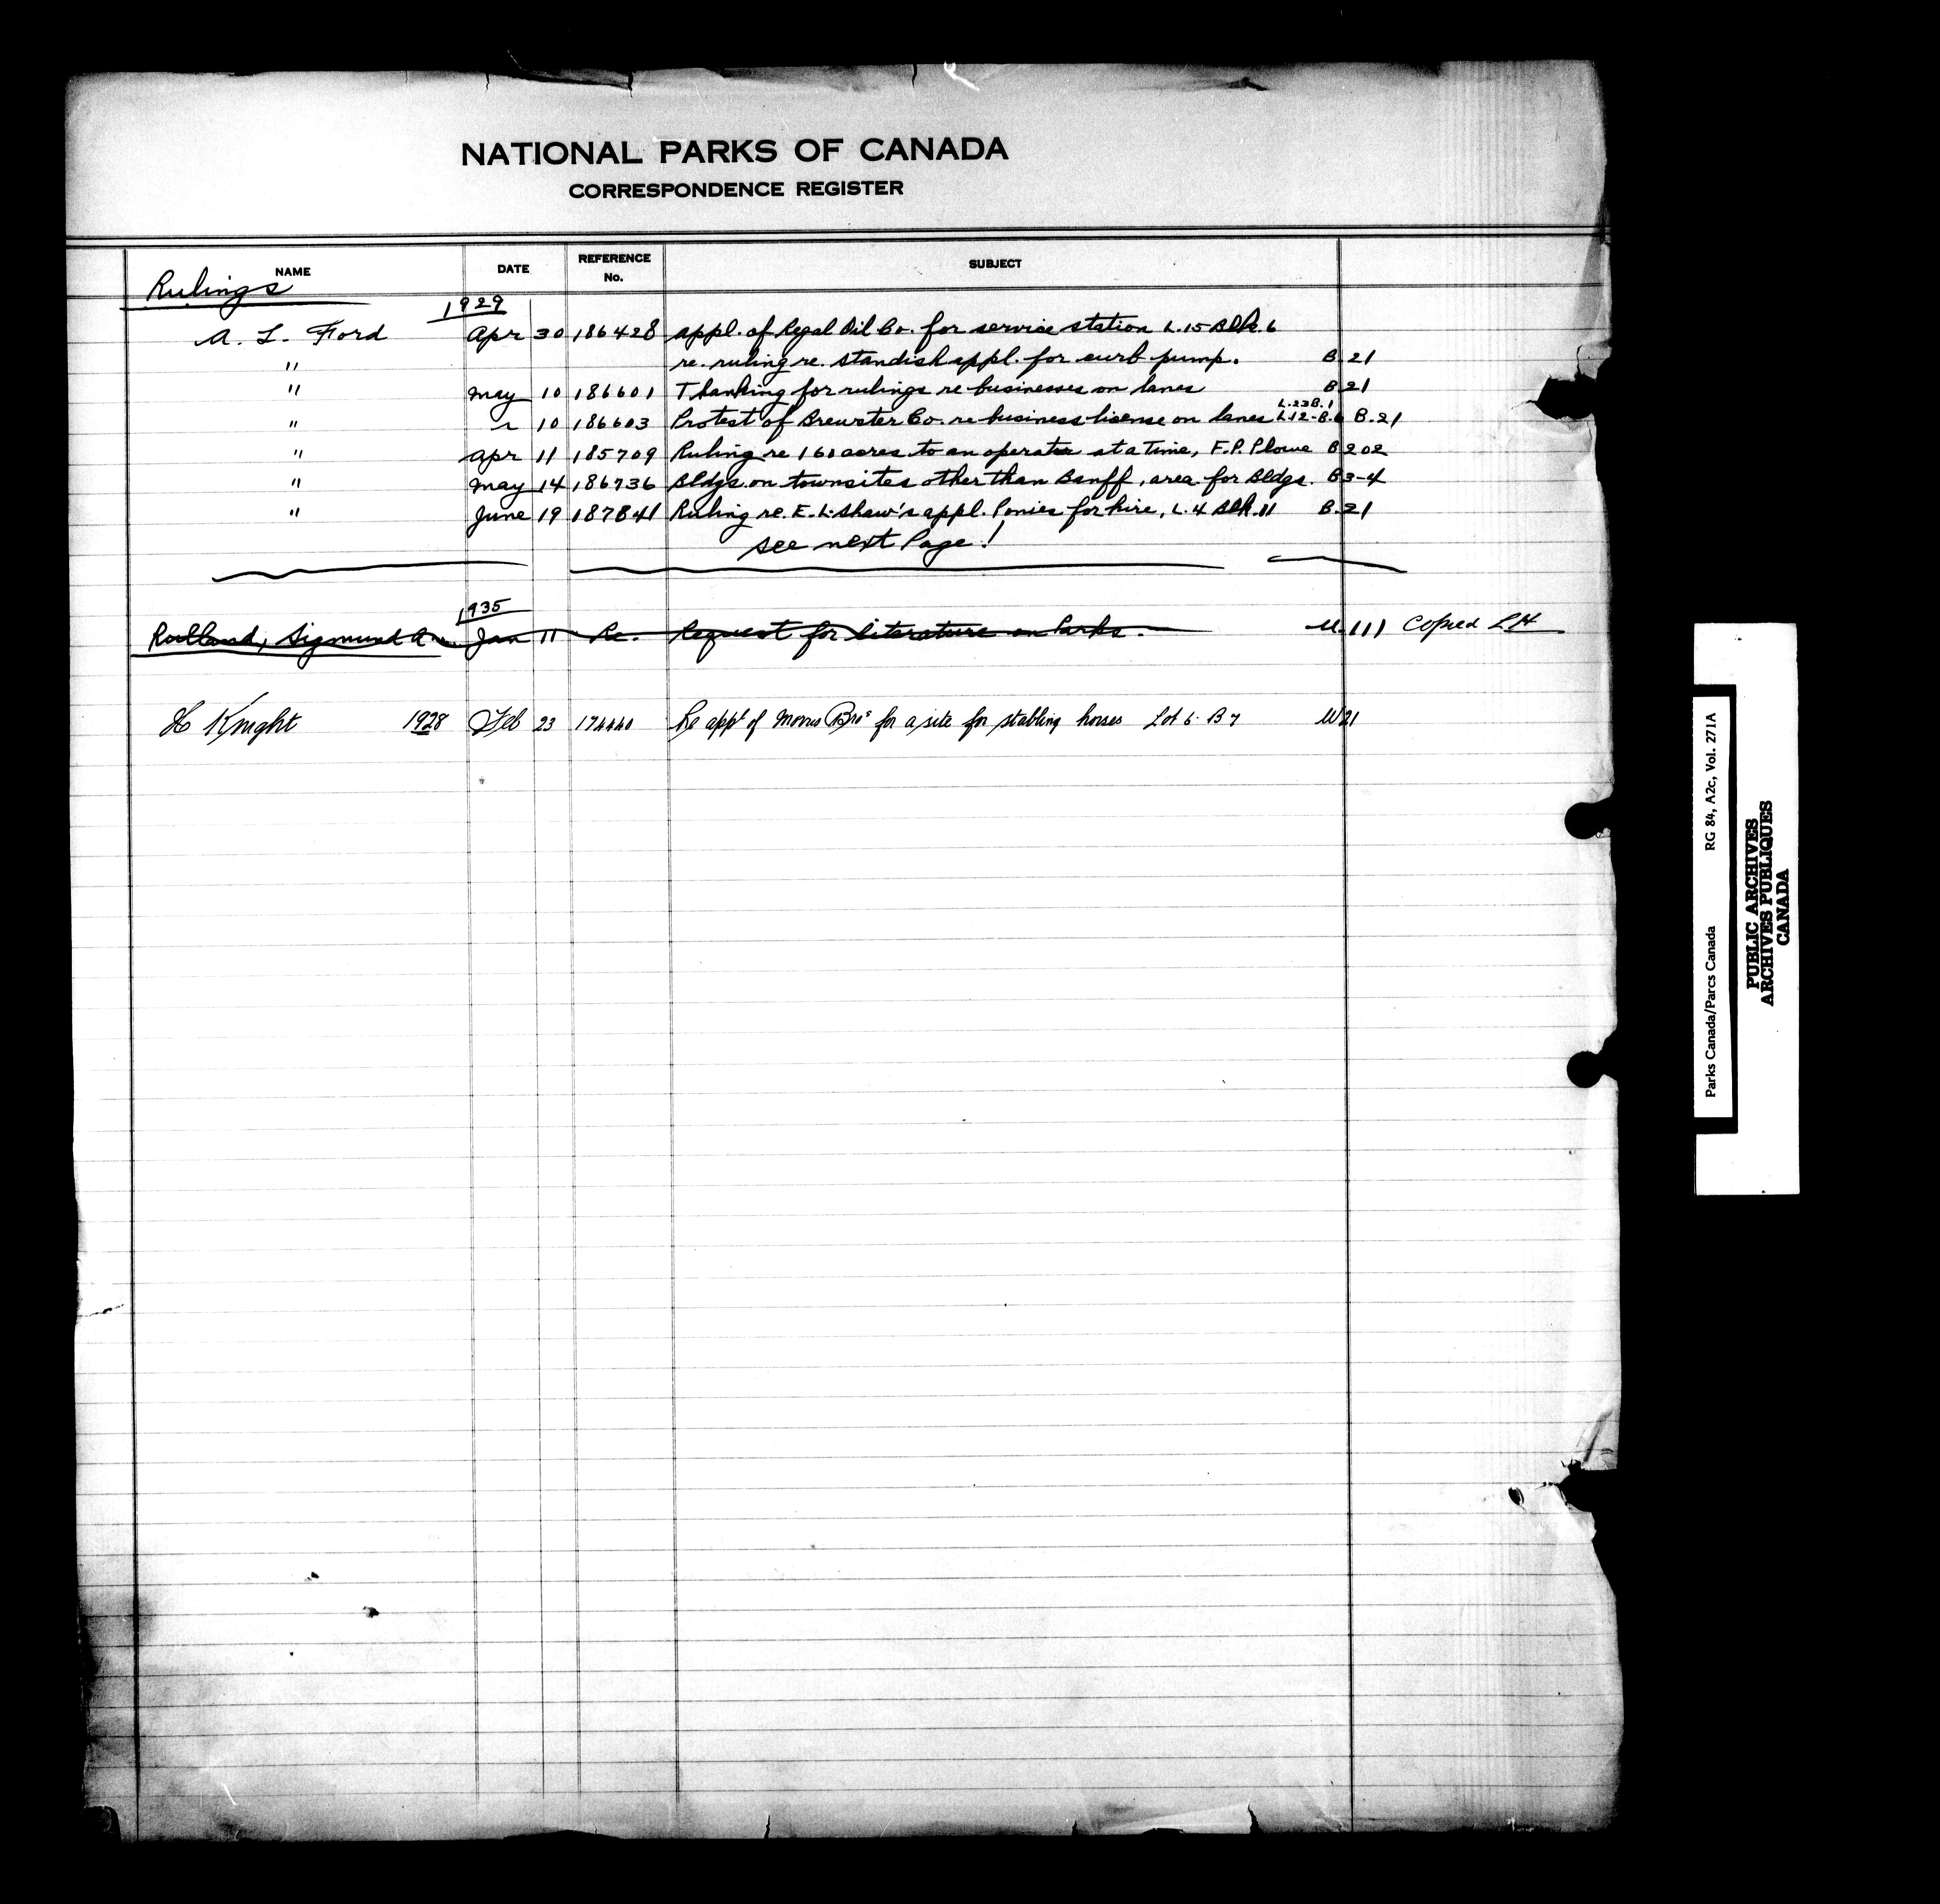 NATIONAL PARKS OF CANADA
CORRESPONDENCE REGISTER
NAME DATE REFERENCE No. SUBJECT
Rulings
1929
A. L. Ford Apr 30 186428 appl. of Regal Oil Co. for service station L.15 Blk. 6
" re. ruling re. Standish appl. for curb pump. B 21
" May 10 186601 Thanking for rulings re businesses on lanes B 21
L.23 B.1
" " 10 186603 Protest of Brewster Co. re business license on lanes L.12-B.6 B.21
" Apr 11 185709 Ruling re 160 acres to an operator at a time, F.P. Plowe B 202
" May 14 186736 Bldgs. on townsites other than Banff, area for Bldgs. B3-4
" June 19 187841 Ruling re. E. L. Shaw's appl. Ponies for hire, L.4 Blk. 11 B.21
see next Page!
1935
Rulland, Sigmund Jan 11 Re. Request for literature on Parks. U.111 Copied LH
H Knight 1928 Feb 23 174440 Re appt of Morris Bros for a site for stabling horses Lot 6 B 7 W21
Parks Canada/Parcs Canada RG 84, A2c, Vol. 271A
PUBLIC ARCHIVES
ARCHIVES PUBLIQUES
CANADA